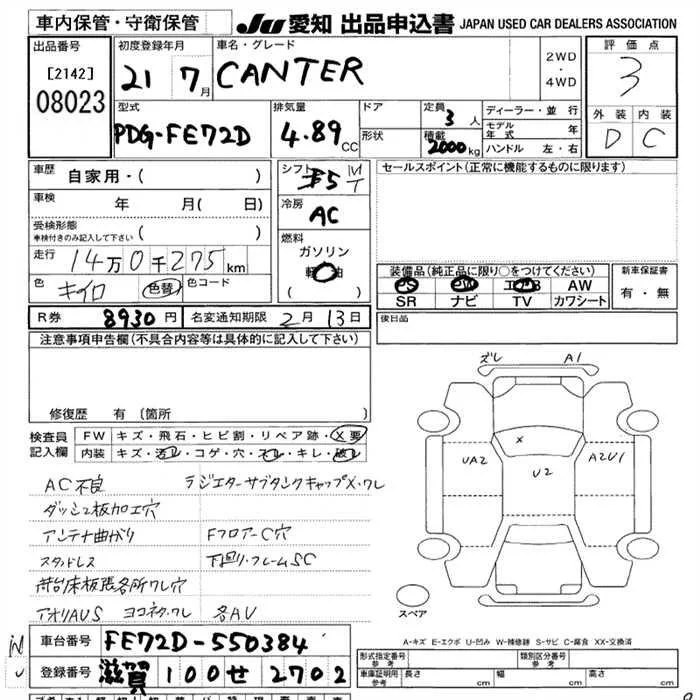 車内保管・守衛保管
JU 愛知 出品申込書 JAPAN USED CAR DEALERS ASSOCIATION
出品番号
[2142]
08023
初度登録年月
21 7月
車名・グレード
CANTER
2WD
・
4WD
評価点
3
外装 内装
D C
型式
PDG-FE72D
排気量
4.89 CC
ドア
形状
定員 3人
積載 2000kg
ディーラー・並行
モデル年式 年
ハンドル 左・右
車歴 自家用・( )
車検 年 月( 日)
受検形態
車検付きのみ記入して下さい ( )
走行 14万0千275km
色 キイロ 色替 色コード
シフト F5 MT
冷房
AC
燃料
ガソリン
軽油
( )
セールスポイント(正常に機能するものに限ります)
装備品(純正品に限り○をつけてください)
PS PW エアB AW
SR ナビ TV カワシート
新車保証書
有・無
R券 8930円 名変通知期限 2月 13日
後日品
注意事項申告欄(不具合内容等は具体的に記入して下さい)
修復歴 有 〔箇所
検査員
記入欄
FW キズ・飛石・ヒビ割・リペア跡・X要
内装 キズ・汚レ・コゲ・穴・スレ・キレ・破レ
AC不良 ラジエターサブタンクキャップX・ワレ
ダッシュ板加工穴
アンテナ曲がり FフロアーC穴
スタッドレス 下回リ・フレームSC
荷台床板張各所ワレ穴
アオリAUS ヨコネタ・ワレ 各AV
ズレ A1
X
UA2 U2 A2U1
スペア
A-キズ E-エクボ U-凹み W-補修跡 S-サビ C-腐食 XX-交換済
車台番号 FE72D-550384
登録番号 滋賀 100せ 2702
形式指定番号 参考
類別区分番号 参考
車庫証明用 参考 長さ cm 幅 cm 高さ cm